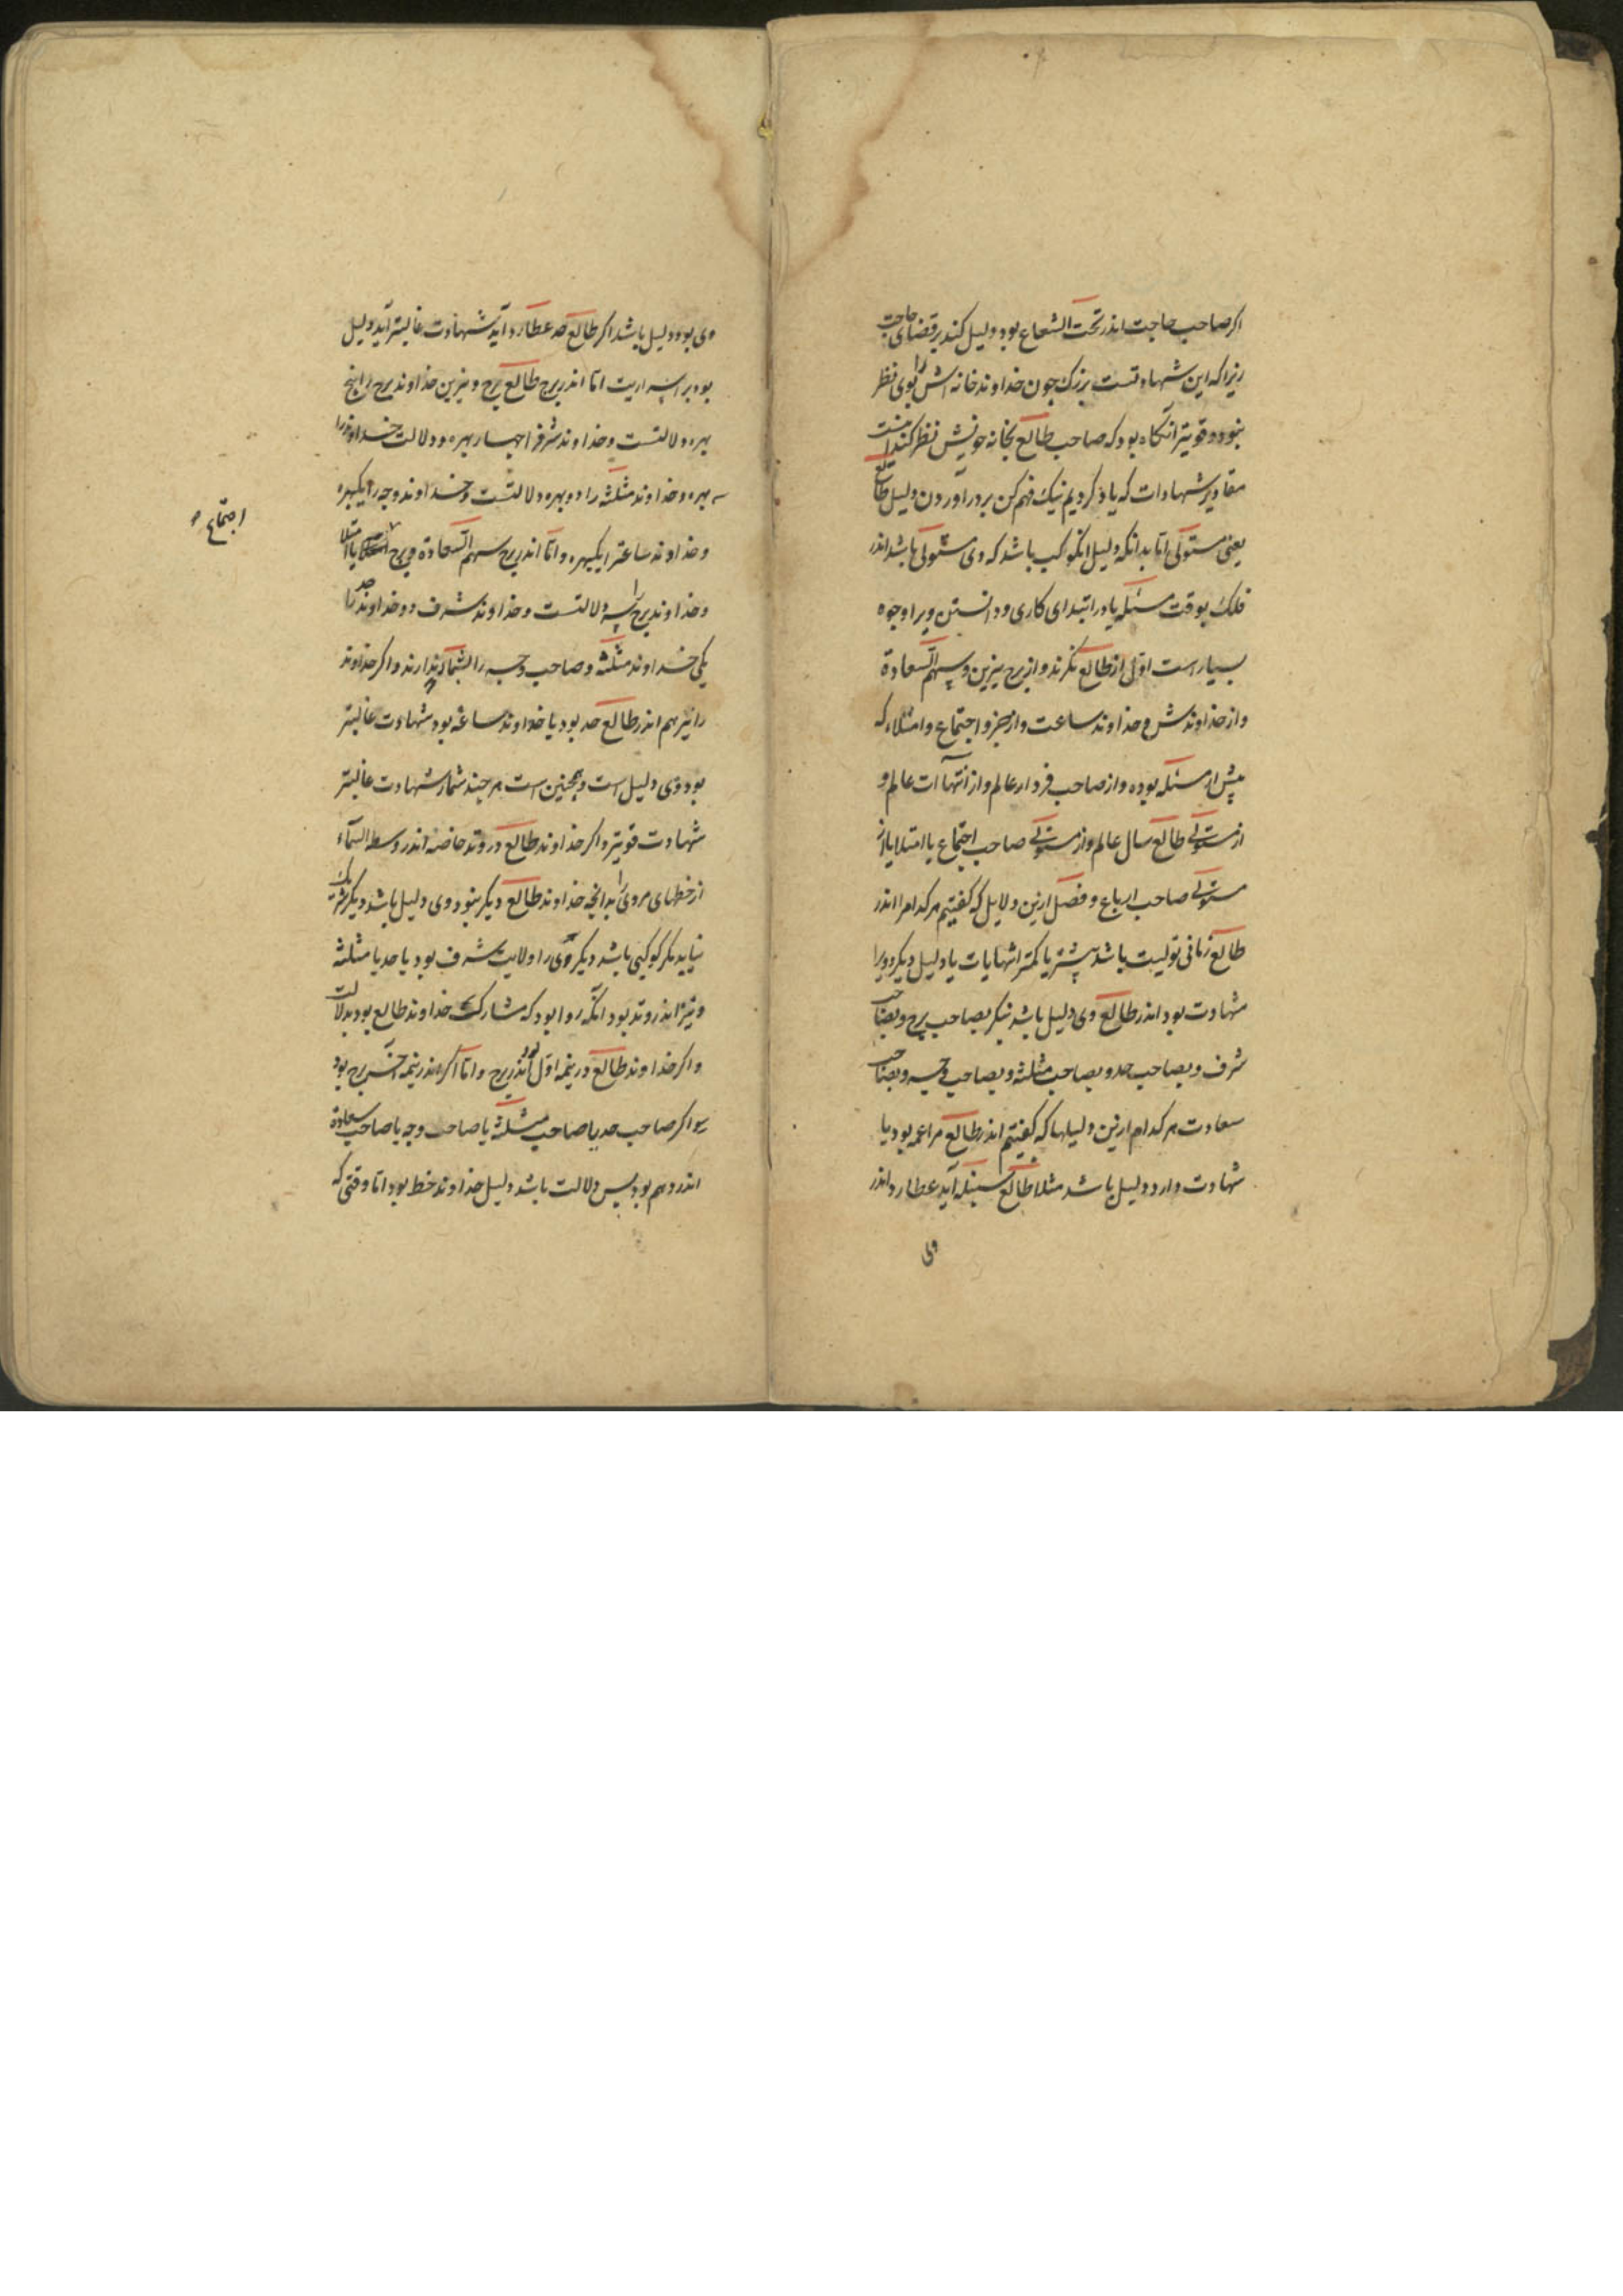 اکر صاحب حاجت اندر تحت الشعاع بود دلیل کند بر قضای حاجت
زیرا که این شهادتست بزرک چون خداوند خانه اش را بوی نظر
نبود و قویتر آنکاه بود که صاحب طالع بخانه خویش نظر کند
مقادیر شهادات که یاد کردیم نیک فهم کن بر در آوردن دلیل طالع
یعنی مستولی اما بدانکه دلیل انکوکب باشد که وی مستولی باشد اندر
فلک بوقت مسئله یا در ابتدای کاری و دانستن ویرا وجوه
بسیار است اول از طالع نکرند و از برج نیرین و سهم السعادة
و از خداوندش و خداوند ساعت و از جزو اجتماع و امتلاء که
پیش از مسئله بوده و از صاحب فردار عالم و از انتهاآت عالم و
از مستولی طالع سال عالم و از مستولی صاحب اجتماع یا امتلا یا از
مستولی صاحب ارباع و فصل ازین دلایل که کفتیم هر کدام را اندر
طالع زمانی تولیت باشد بیشتر یا کمتر یا دلیل دیکر و ویرا
شهادت بود اندر طالع وی دلیل باشد بنکر بصاحب برج و بصاحب
شرف و بصاحب حد و بصاحب مثلثه و بصاحب وجه و بصاحب
سعادت هر کدام ازین دلیلها که کفتیم اندر طالع مزاعمه بود یا
شهادت وارد دلیل باشد مثلا طالع سنبله آید عطارد اندر
وی
وی بود دلیل باشد اکر طالع حد عطارد آید شهادت غالبتر آید دلیل
بود اما اندر برج طالع برج و نیرین خداوند برج را پنج
بهره دلالتست و خداوند شرف را چهار بهره و دلالت خداوند حد را
سه بهره و خداوند مثلثه را دو بهره دلالتست و خداوند وجه را یکبهره
و خداوند ساعت را یکبهره و اما اندر برج سهم السعادة و برج یا امتلا
اجتماع
و خداوند برج را سه دلالتست و خداوند شرف دو و خداوند حد را
یکی خداوند مثلثه و صاحب وجه را بشمار ندارند و اکر خداوند
را نیز سهم اندر طالع حد بود یا خداوند ساعة بود شهادت غالبتر
بود وی دلیل است و همچنین است هر چند شمار شهادت غالبتر
شهادت قویتر و اکر خداوند طالع در وتد خاصه اندر وسط السمآء
از خطهای مروی را بدانچه خداوند طالع دیکر نبود وی دلیل باشد دیکر شریک
نیاید مکر کوکبی باشد دیکر وی را ولایت شرف بود یا حد یا مثلثه
و نیز اندر وتد بود آنکه روا بود که مشارک خداوند طالع بود بدلالت
و اکر خداوند طالع در نیمه اول بود اندر برج و اما اکر اندر نیمه آخر برج بود
و اکر صاحب حد یا صاحب مثلثه یا صاحب وجه یا صاحب سعادة
اندر دهم بود پس دلالت باشد دلیل خداوند خط بود اما وقتی که